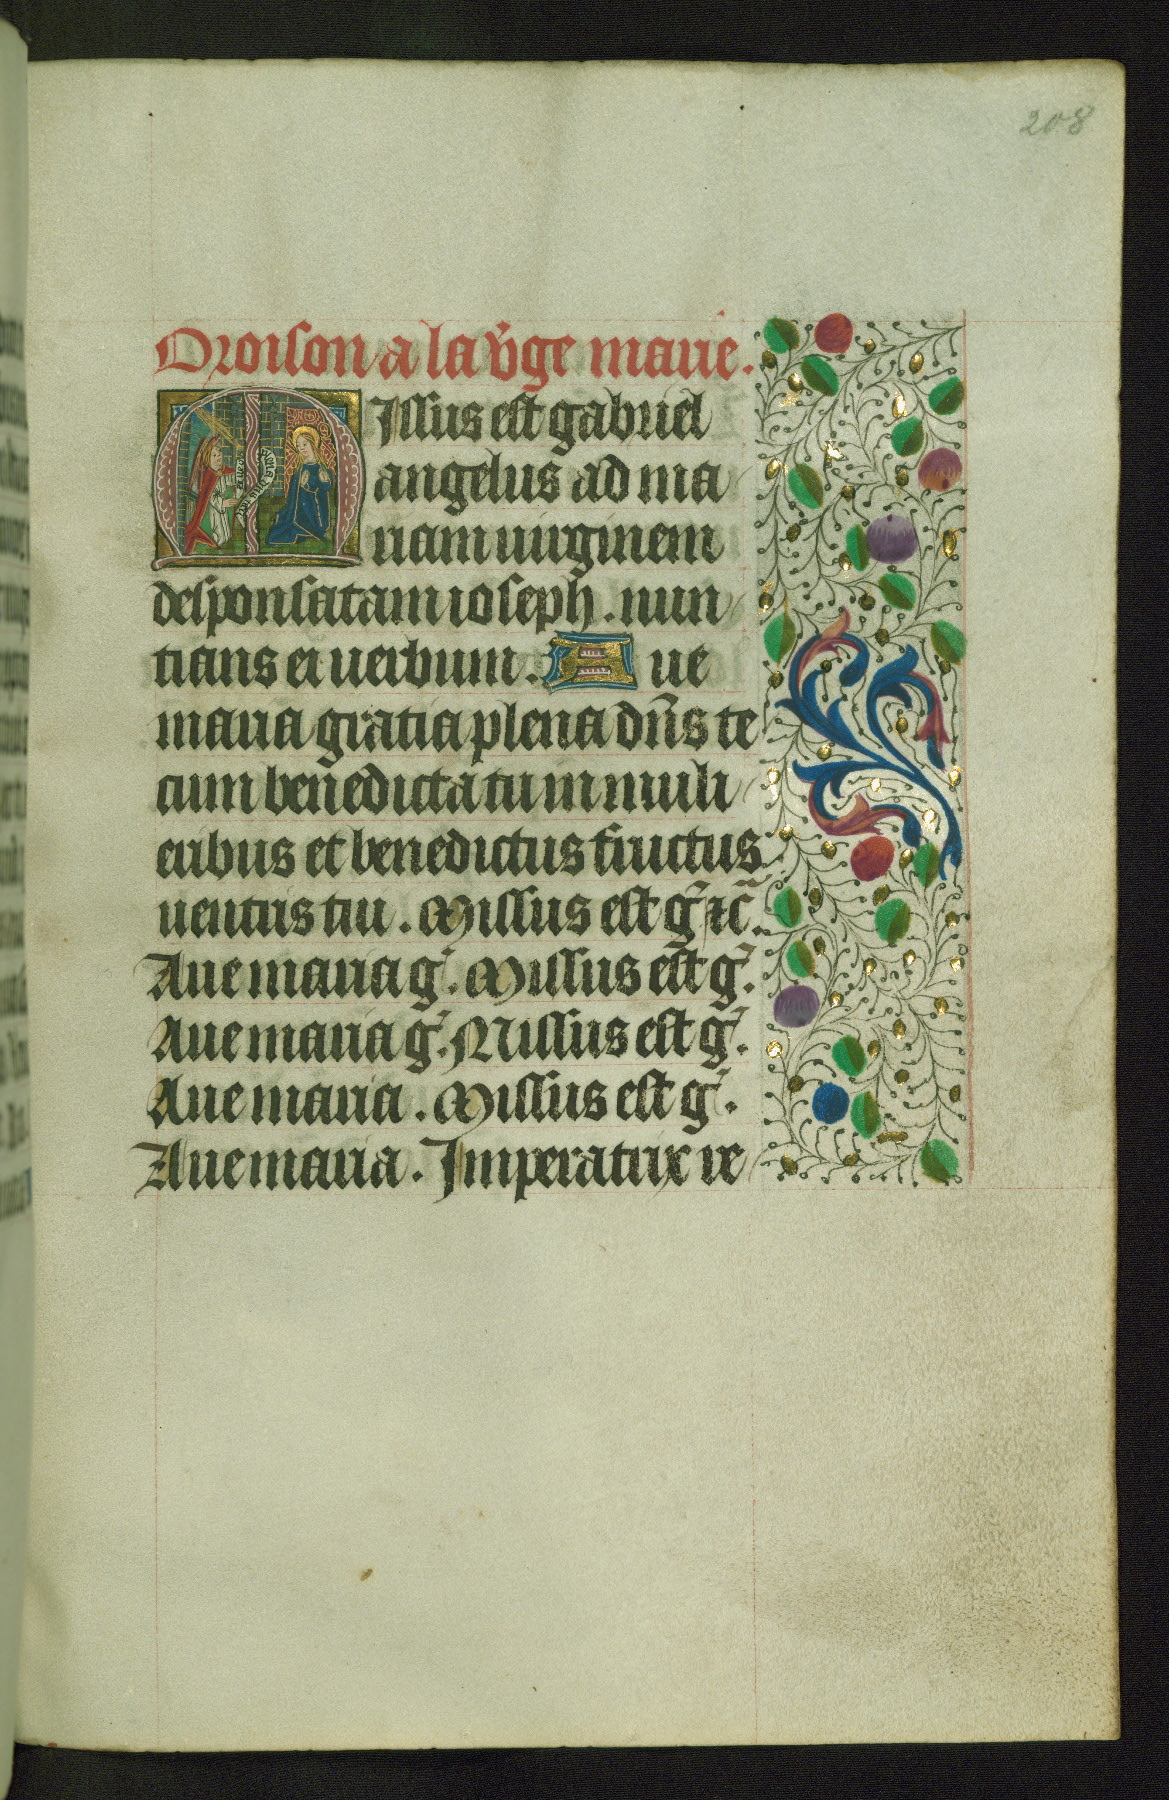 208
Oroison a la v̄ge marie.
Missus est gabriel
angelus ad ma
riam uirginem
desponsatam ioseph. nun
tians ei uerbum. A ue
maria gratia plena dn̄s te
cum benedicta tu in muli
eribus et benedictus fructus
uentris tui. Missus est ḡ ⁊c̄.
Aue maria ḡ. Missus est ḡ.
Aue maria ḡ. Missus est ḡ.
Aue maria. Missus est ḡ.
Aue maria. Imperatrix re